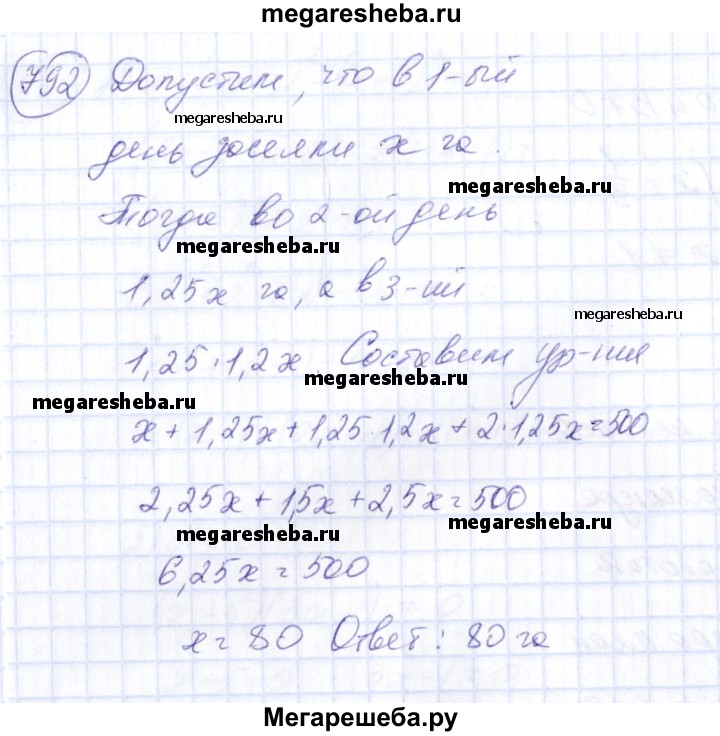 megaresheba.ru
792 Допустим, что в 1-ый
megaresheba.ru
день засеяли x га.
megaresheba.ru
Тогда во 2-ой день
megaresheba.ru
1,25x га, а в 3-ий
megaresheba.ru
1,25·1,2x. Составим ур-ние
megaresheba.ru
megaresheba.ru
x + 1,25x + 1,25·1,2x + 2·1,25x = 500
2,25x + 1,5x + 2,5x = 500
megaresheba.ru
megaresheba.ru
6,25x = 500
x = 80 Ответ: 80 га
Мегарешеба.ру